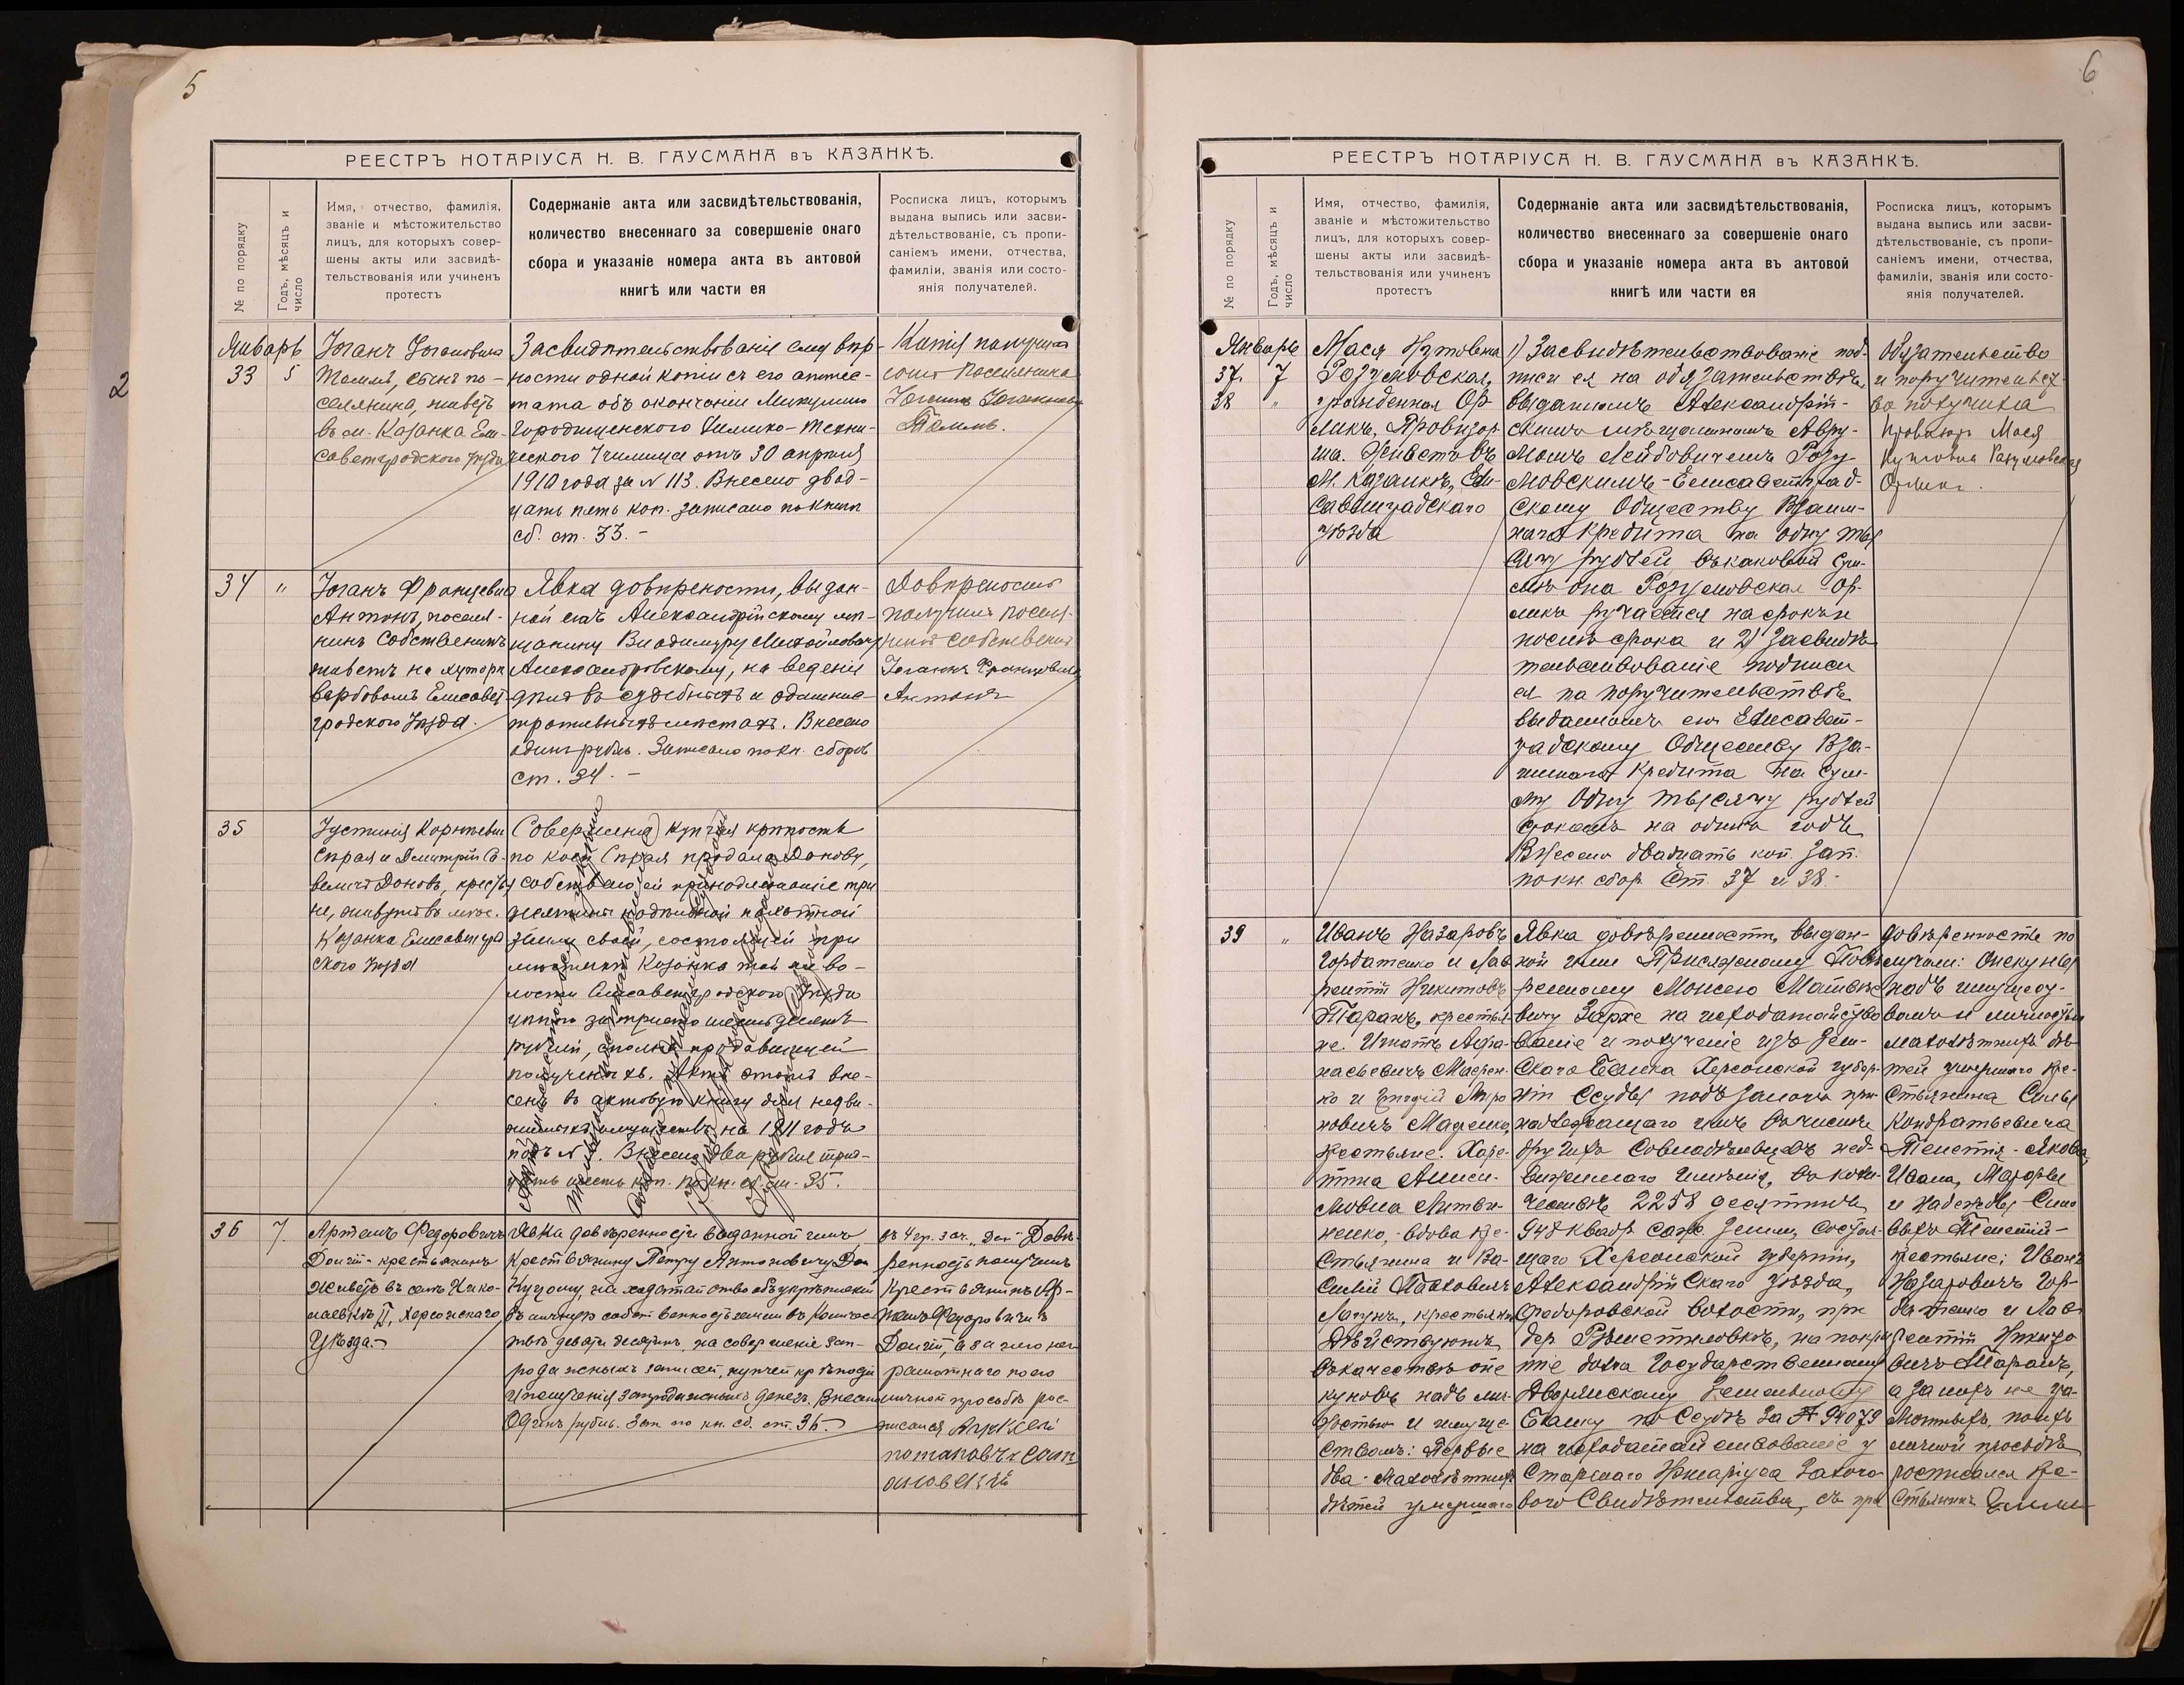 5
РЕЕСТРЪ НОТАРІУСА Н. В. ГАУСМАНА въ КАЗАНКѢ.
№ по порядку
Годъ, мѣсяцъ и
число
Имя, отчество, фамилія,
званіе и мѣстожительство
лицъ, для которыхъ совер-
шены акты или засвидѣ-
тельствованія или учиненъ
протестъ
Содержаніе акта или засвидѣтельствованія,
количество внесеннаго за совершеніе онаго
сбора и указаніе номера акта въ актовой
книгѣ или части ея
Росписка лицъ, которымъ
выдана выпись или засви-
дѣтельствованіе, съ пропи-
саніемъ имени, отчества,
фамиліи, званія или состо-
янія получателей.
Январь
33 5
Іоганъ Іогановичъ
сынъ по-
селянина, живетъ
въ м. Казанка Ели-
саветградского уѣзда
Засвидѣтельствованіе ему вѣр-
ности одной копіи съ его аттес-
тата объ окончаніи
Городищенского Химико-техни-
ческого Училища отъ 30 апрѣля
1910 года за N 113. Внесено двад-
цать пять коп. записано по книгѣ
сб. ст. 33. -
Копія получилъ
поселянина
Іоганъ Іогановичъ
34 "
Іоганъ Францевичъ
Антонъ, поселя-
нинъ собственникъ
живетъ на хуторѣ
Вербовомъ Елисавет-
градского Уѣзда.
Явка довѣрености, выдан-
ной имъ Александрійскому мѣ-
щанину Владимиру Михайловичу
Александровскому, на веденіе
дѣлъ въ судебныхъ и админис-
тративныхъ мѣстахъ. Внесено
одинъ рубль. Записано по кн. сборѣ
ст. 34. -
Довѣреность
получилъ посел-
янинъ собственикъ
Іоганъ Францовичъ
Антонъ
35
Іустинія Корнѣевна
Спрая и Дмитрій Са-
вельевъ Доновъ, крестья-
не, живутъ въ мѣс.
Казанка Елисаветград
ского Уѣзда
Совершена купчая крѣпость
по коей Спрая продала Донову,
собственно ей принадлежащіе три
десятины надѣльной пахотной
земли своей, состоящей при
мѣстечкѣ Казанка той же во-
лости Елисаветградского Уѣзда
цѣною за триста шестьдесятъ
рублей, сполна продавщицей
полученныхъ. Актъ этотъ вне-
сенъ въ актовую книгу для недви-
жимыхъ имуществъ на 1911 годъ
подъ N . Внесено два рубля трид-
цать шесть коп. по кн. сб. ст. 35.
36 7.
Артемъ Федоровичъ
Долгій - крестьянинъ
Живетъ въ селѣ Нико-
лаевкѣ II, Херсонскаго
Уѣзда. -
Явка довѣренности выданной имъ
Крестьянину Петру Антоновичу Дон
на ходатайство объ укрѣпленіи
въ личную собственность земли въ количес
твѣ девяти десятинъ, на совершеніе зап-
родажныхъ записей, купчей крѣпости
и полученія запродажныхъ денегъ. Внесено
Одинъ рубль. Зап. по кн. сб. ст. 36.
въ 4 гр. зач. „Дон“ Довѣ-
ренность получилъ
Крестьянинъ Ар-
темъ Федоровичъ
Долгій, а за него не
грамотнаго по его
личной просьбѣ рос-
писался Алексѣй
потаповъ
6
РЕЕСТРЪ НОТАРІУСА Н. В. ГАУСМАНА въ КАЗАНКѢ.
№ по порядку
Годъ, мѣсяцъ и
число
Имя, отчество, фамилія,
званіе и мѣстожительство
лицъ, для которыхъ совер-
шены акты или засвидѣ-
тельствованія или учиненъ
протестъ
Содержаніе акта или засвидѣтельствованія,
количество внесеннаго за совершеніе онаго
сбора и указаніе номера акта въ актовой
книгѣ или части ея
Росписка лицъ, которымъ
выдана выпись или засви-
дѣтельствованіе, съ пропи-
саніемъ имени, отчества,
фамиліи, званія или состо-
янія получателей.
Январь
37. 7
38 "
Мася Нутовна
Розумовская,
рожденная Ор-
ликъ, Провизор-
ша. Живетъ въ
М. Казанкѣ, Ели-
саветградскаго
уѣзда
1) Засвидѣтельствованіе под-
писи ея на обязательствѣ,
выданномъ Александрій-
скимъ мѣщаниномъ Авру-
момъ Лейбовичемъ Розу-
мовскимъ - Елисаветград-
скому Обществу Взаим-
наго Кредита на одну ты-
сячу рублей, въ каковой сум-
мѣ она Розумовская Ор-
ликъ ручается на срокъ и
послѣ срока и 2) Засвидѣ-
тельствованіе подписи
ея на поручительствѣ
выданномъ ею Елисавет-
градскому Обществу Вза-
имнаго Кредита на сум-
му Одну тысячу рублей
срокомъ на одинъ годъ
Внесено двадцать коп. Зап.
по кн. сбор. Ст. 37 и 38. -
Обязательство
и поручительст-
во получила
Провизор Мася
Нутовна Разумовская
Орликъ.
39 "
Иванъ Назаровъ
Горбатенко и Лав
рентій Никитовъ
Таранъ, крестья
не. Игнатъ Афа-
насьевичъ
новичъ Маденко,
крестьяне. Харе-
тина Аниси-
мовна Литви-
ненко, - вдова кре-
стьянина и Ва-
силій Павловичъ
Лагунъ, крестьянинъ
Дѣйствуютъ
въ качествѣ опе
куновъ надъ лич-
ностью и имуще-
ствомъ: Первые
два - малолѣтнихъ
дѣтей умершаго
Явка довѣренности, выдан-
ной ими Присяжному Повѣ
ренному Моисею Матвѣе
вичу Зархе на исходатайство
ваніе и полученіе изъ Зем-
скаго Банка Херсонской губер-
ніи Ссуды подъ залогъ при-
надлежащаго имъ въ числѣ
другихъ совладѣльцевъ нед-
вижимаго имѣнія, въ коли-
чествѣ 2258 десятинъ
948 кварт. саж. земли, состоя-
щаго Херсонской губерніи,
Александрійскаго уѣзда,
Федоровской волости, при
дер. Рѣшетиловкѣ, на покры
тіе долга Государственному
Дворянскому Земельному
Банку по Ссудѣ за № 94079
на исходатайствованіе у
Старшаго Нотаріуса Залого-
вого Свидѣтельства, съ пра
Довѣренность по
лучили: Опекуны
надъ имущест-
вомъ и личностью
малолѣтнихъ дѣ-
тей умершаго кре-
стьянина Силы
Кондратьевича
Телетія - Якова,
Ивана, Марфы
и Надежды Сило
выхъ Телетій -
крестьяне: Иванъ
Назаровичъ Гор-
батенко и Лав
рентій Никито
вичъ Таранъ,
а за нихъ не гра-
мотныхъ, по ихъ
личной просьбѣ
росписался кре-
стьянинъ